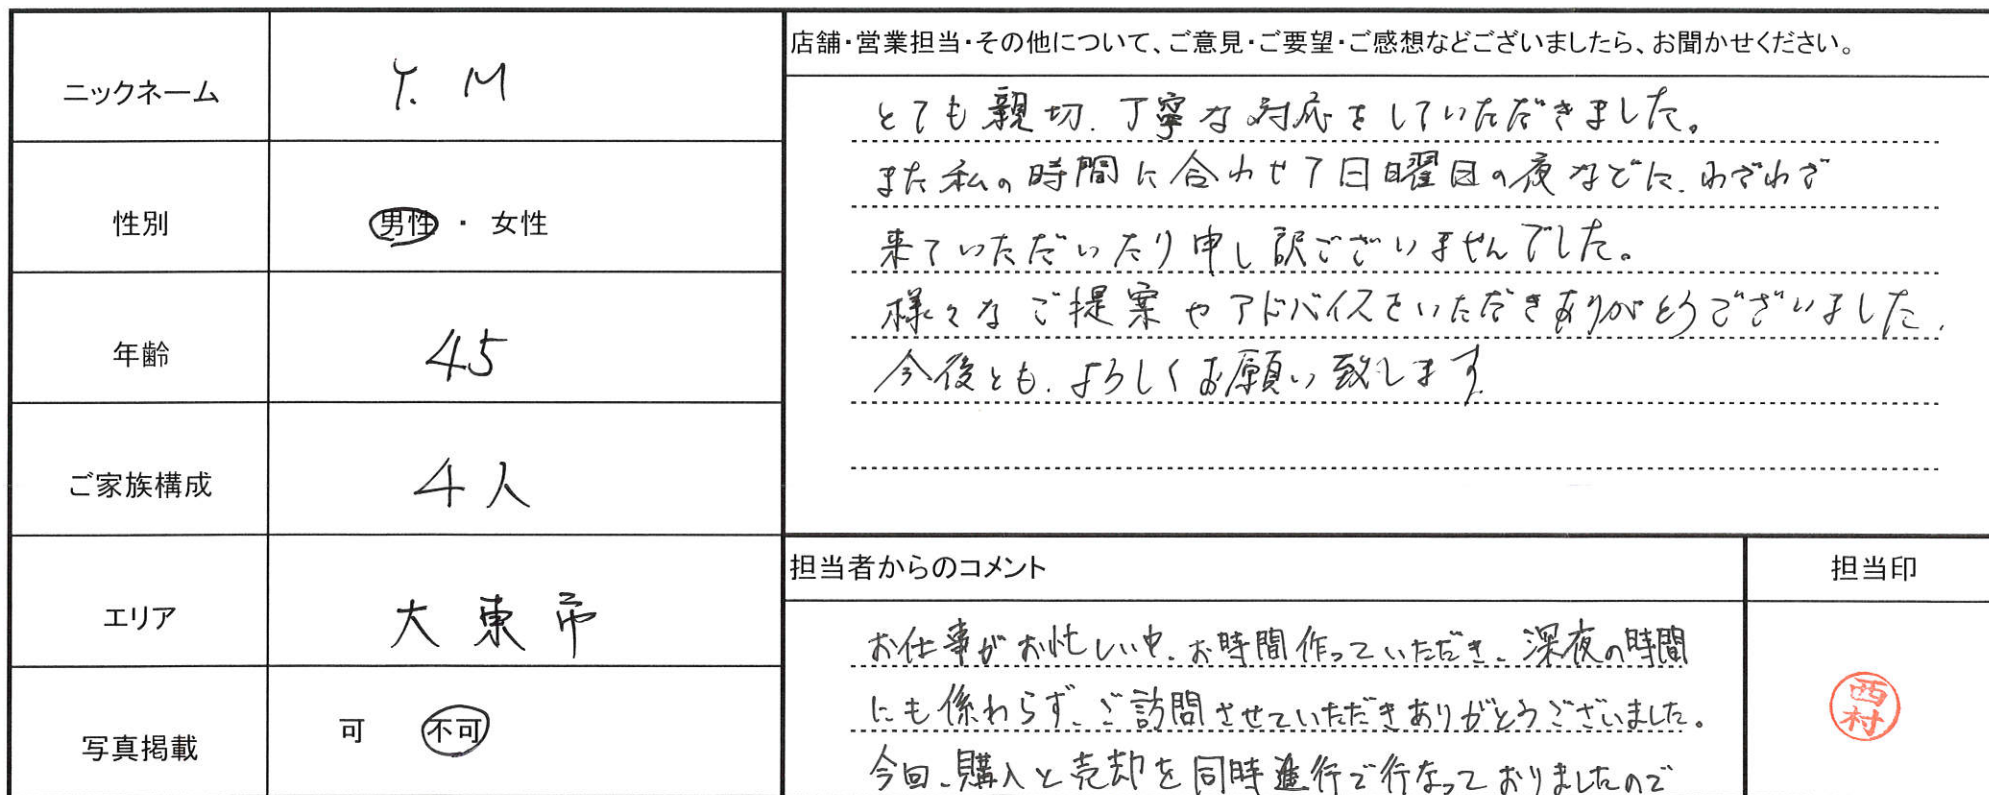 ニックネーム
Y. M
性別
男性 ・ 女性
年齢
45
ご家族構成
4人
エリア
大東市
写真掲載
可 不可
店舗・営業担当・その他について、ご意見・ご要望・ご感想などございましたら、お聞かせください。
とても親切、丁寧な対応をしていただきました。
また私の時間に合わせて日曜日の夜などに、わざわざ
来ていただいたり申し訳ございませんでした。
様々なご提案やアドバイスをいただきありがとうございました、
今後とも、よろしくお願い致します
担当者からのコメント
お仕事がお忙しい中、お時間作っていただき、深夜の時間
にも係わらず、ご訪問させていただきありがとうございました。
今回、購入と売却を同時進行で行なっておりましたので
担当印
西村